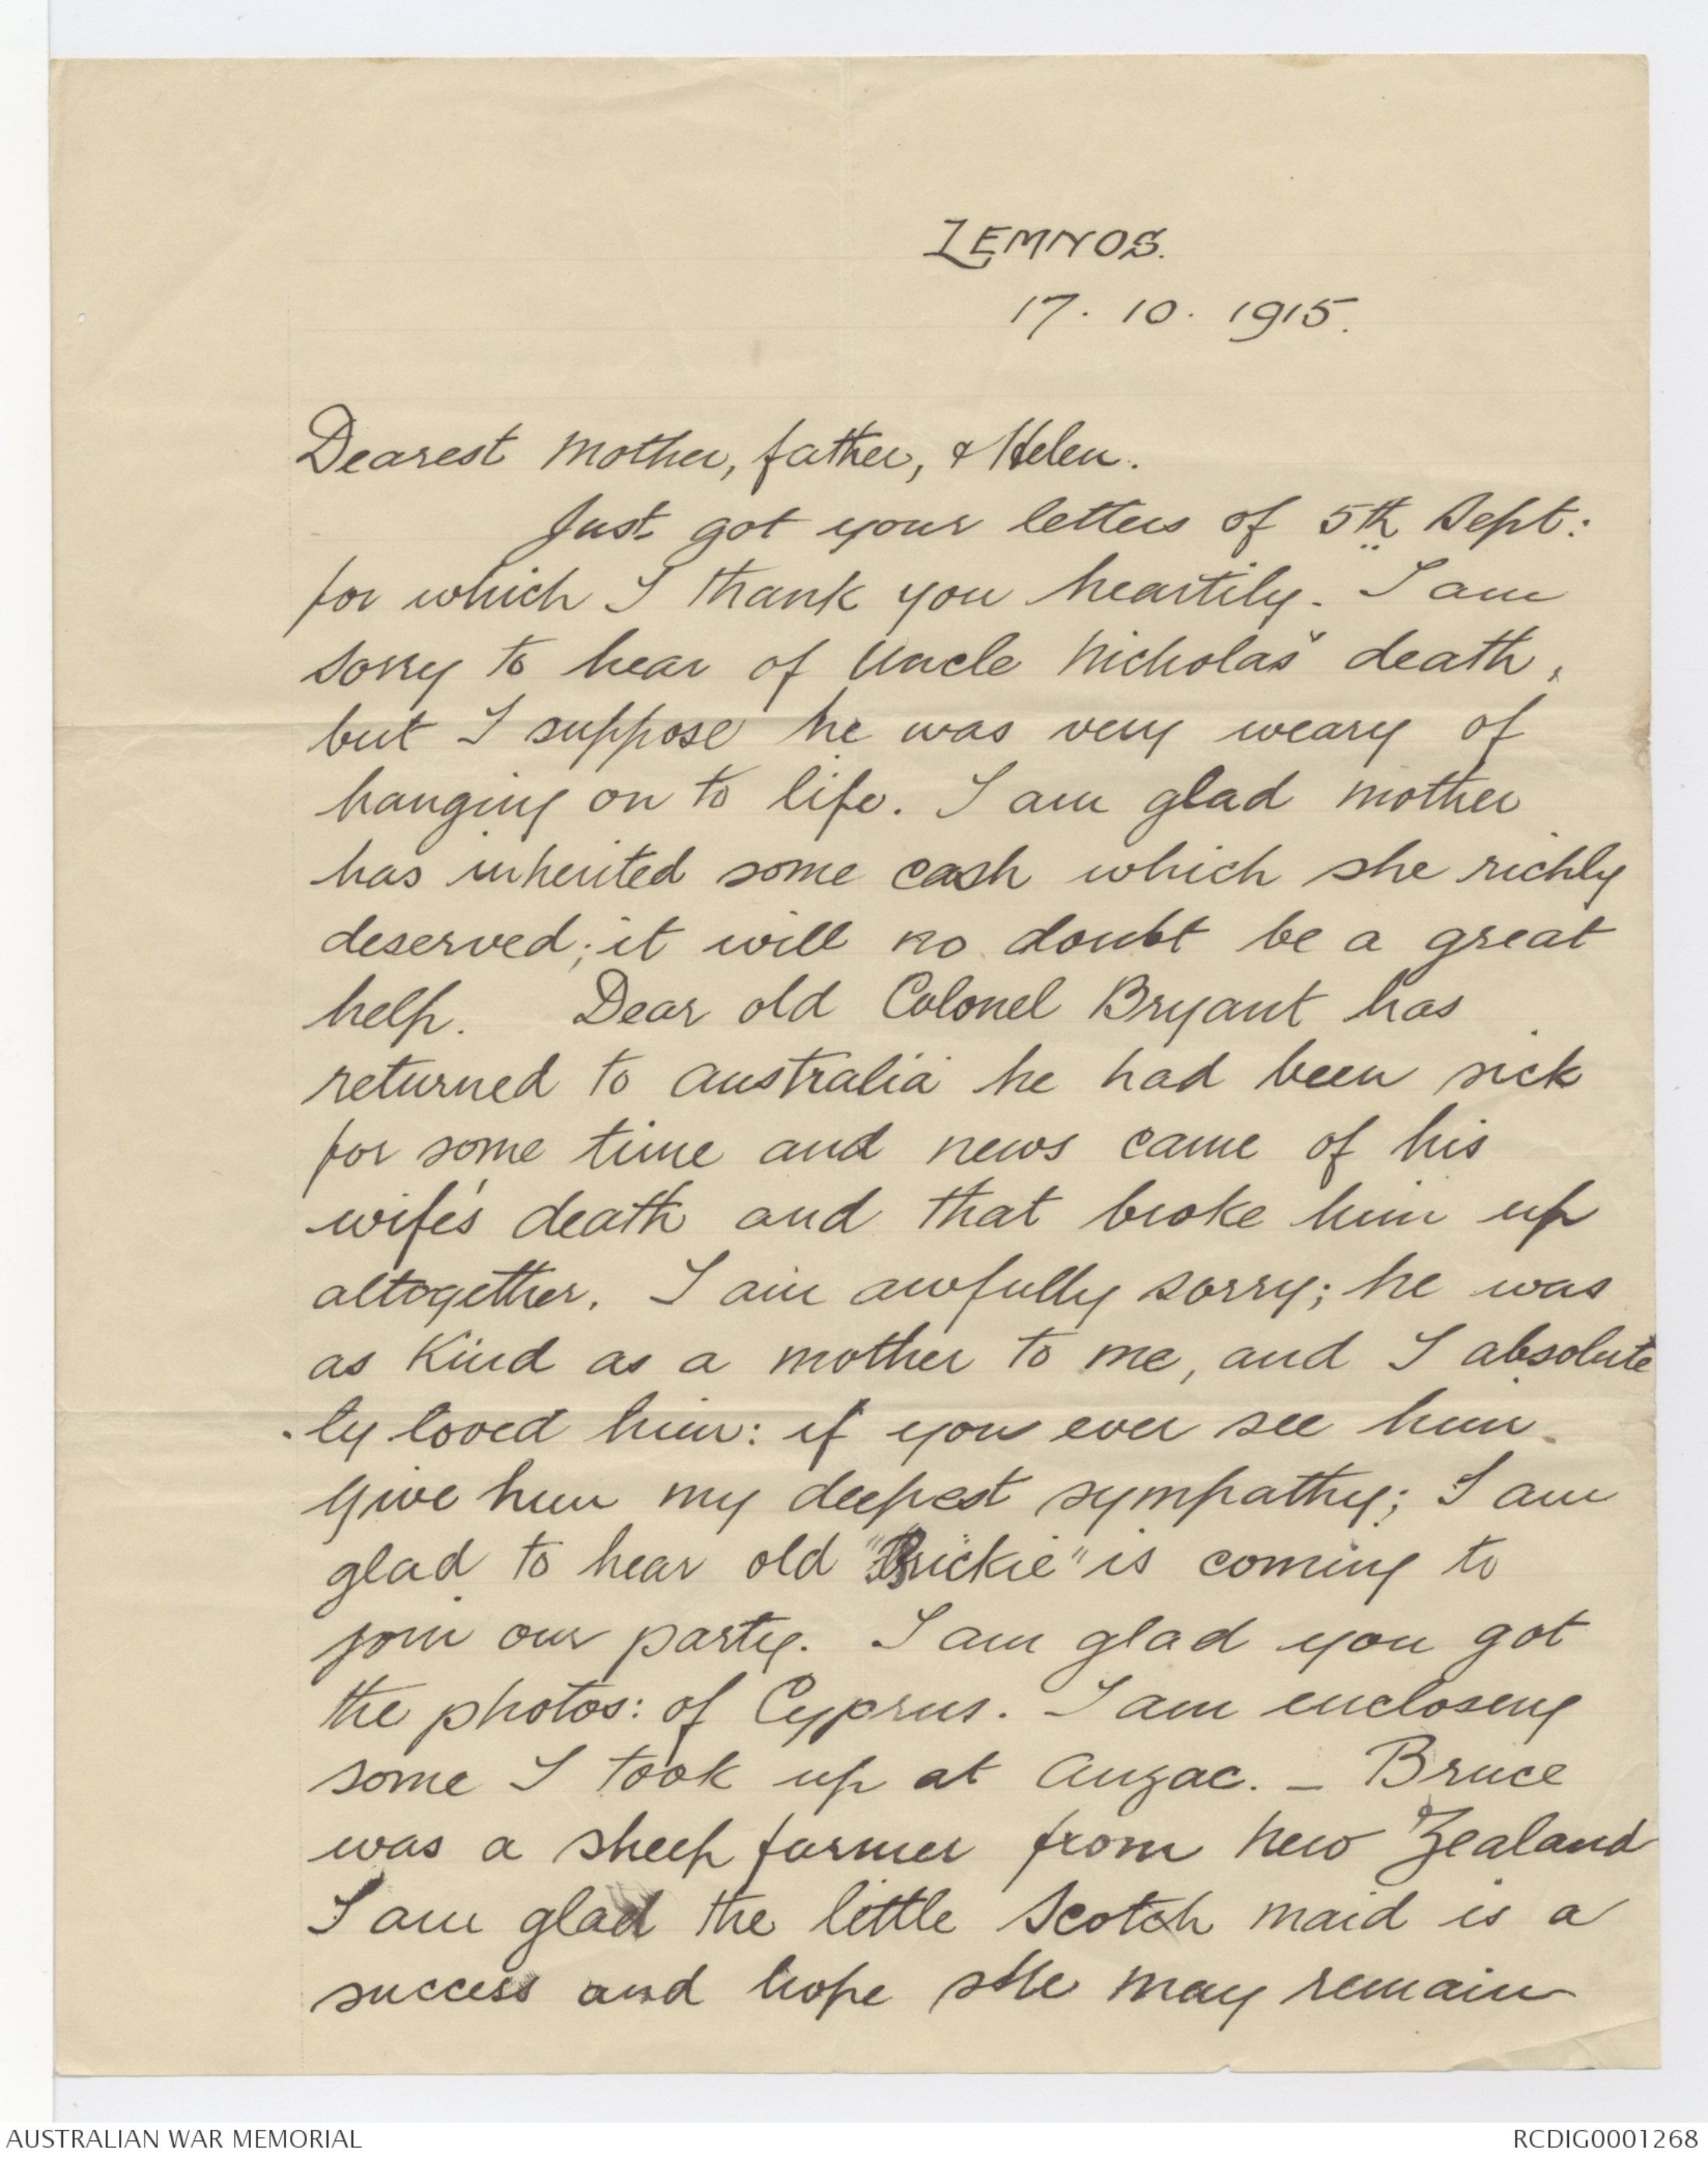 LEMNOS.
17. 10. 1915.
Dearest Mother, father, & Helen.
Just got your letters of 5th Sept:
for which I thank you heartily. I am
sorry to hear of Uncle Nicholas' death,
but I suppose he was very weary of
hanging on to life. I am glad mother
has inherited some cash which she richly
deserved; it will no doubt be a great
help. Dear old Colonel Bryant has
returned to Australia he had been sick
for some time and news came of his
wife's death and that broke him up
altogether. I am awfully sorry; he was
as kind as a mother to me, and I absolute
-ly loved him: if you ever see him
give him my deepest sympathy; I am
glad to hear old "Brickie" is coming to
join our party. I am glad you got
the photos: of Cyprus. I am enclosing
some I took up at Anzac. - Bruce
was a sheep farmer from New Zealand
I am glad the little Scotch maid is a
success and hope she may remain
AUSTRALIAN WAR MEMORIAL
RCDIG0001268